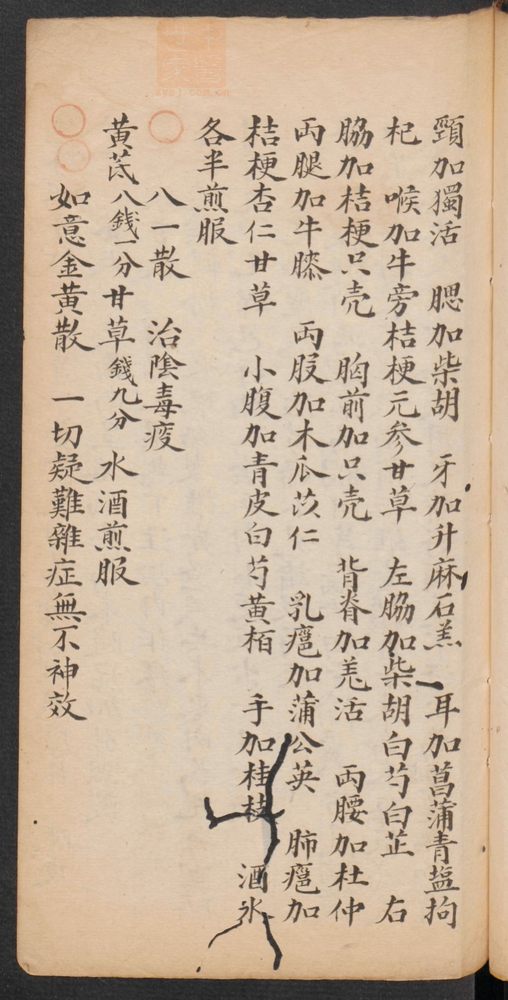 頸加獨活 腮加柴胡 牙加升麻石羔 耳加菖蒲青盐拘
杞 喉加牛旁桔梗元参甘草 左脇加柴胡白芍白芷 右
脇加桔梗只壳 胸前加只壳 背脊加羌活 両腰加杜仲
両腿加牛膝 両股加木瓜苡仁 乳癰加蒲公英 肺癰加
桔梗杏仁甘草 小腹加青皮白芍黄栢 手加桂枝 酒水
各半煎服
八一散 治陰毒疫
黄芪八錢一分甘草錢九分 水酒煎服
如意金黄散 一切疑難雜症無不神效